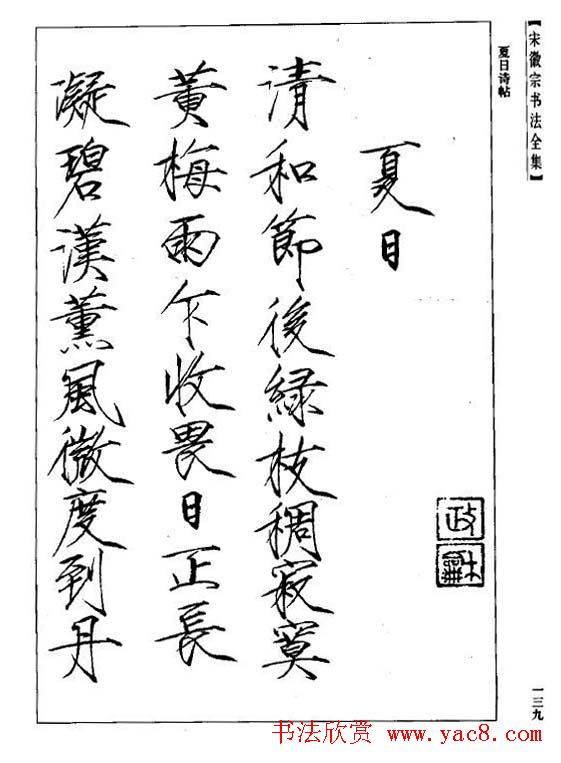 【宋徽宗书法全集】
夏日诗帖
夏日
清和節後綠枝稠寂寞
黃梅雨乍收畏日正長
凝碧漢薰風微度到丹
政龢
一三九
书法欣赏 www.yac8.com